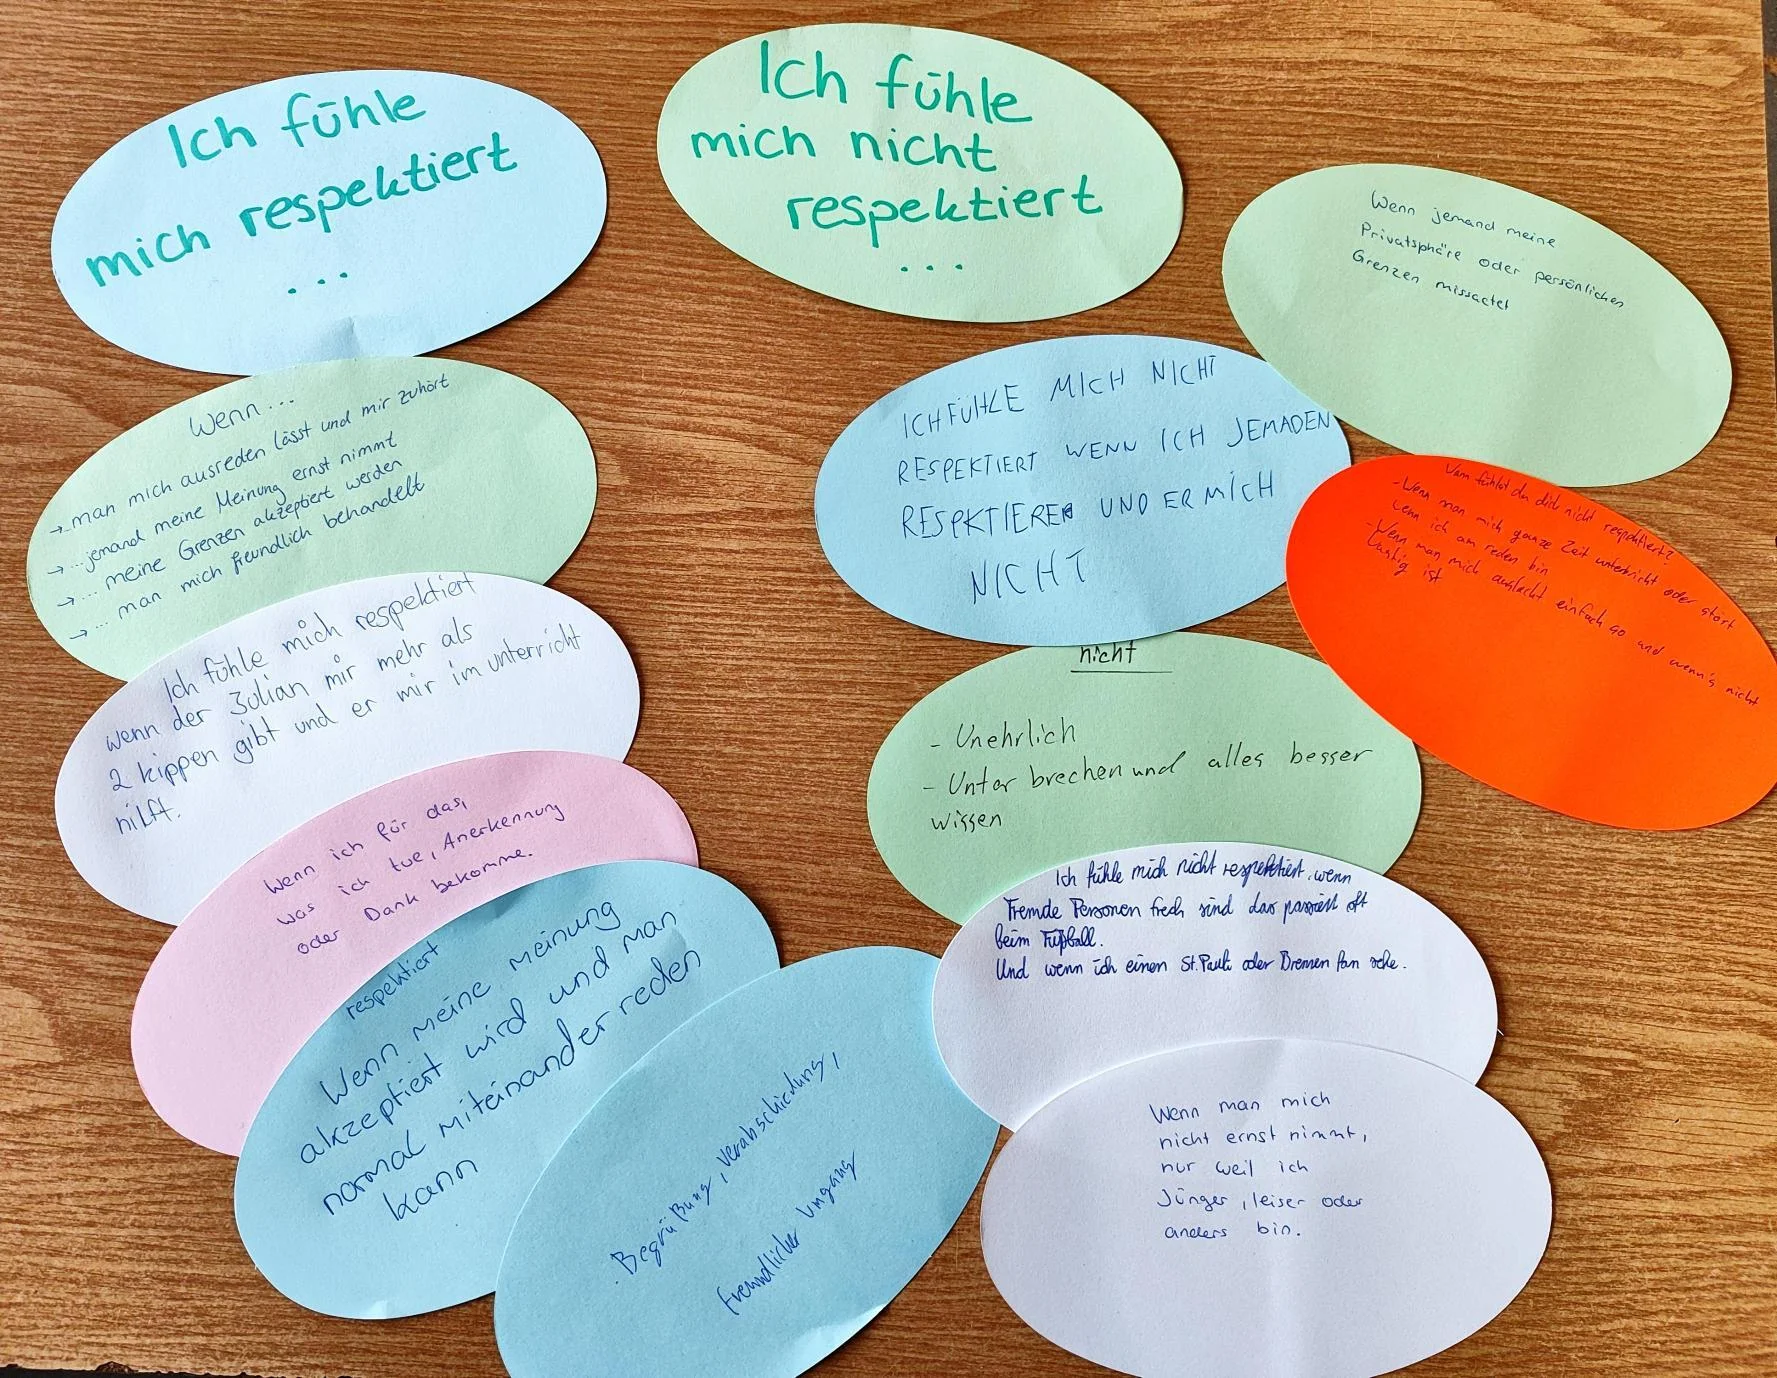 Ich fühle
mich respektiert
...
Wenn...
→...man mich ausreden lässt und mir zuhört
→...jemand meine Meinung ernst nimmt
→... meine Grenzen akzeptiert werden
→... man mich freundlich behandelt
Ich fühle mich respektiert
wenn der Julian mir mehr als
2 kippen gibt und er mir im unterricht
hilft.
Wenn ich für das,
was ich tue, Anerkennung
oder Dank bekomme.
respektiert
Wenn meine meinung
akzeptiert wird und man
normal miteinander reden
kann
Begrüßung, verabschiedung,
freundlicher Umgang
Ich fühle
mich nicht
respektiert
...
Wenn jemand meine
Privatsphäre oder persönlichen
Grenzen missactet
ICH FÜHLE MICH NICHT
RESPEKTIERT WENN ICH JEMADEN
RESPKTIERE UND ER MICH
NICHT
Wann fühlst du dich nicht respektiert?
-Wenn man mich ganze Zeit unterbricht oder stört
wenn ich am reden bin
-Wenn man mich auslacht einfach so und wenn's nicht
lustig ist
nicht
- Unehrlich
- Unter brechen und alles besser
wissen
Ich fühle mich nicht respektiert wenn
Fremde Personen frech sind das passiert oft
beim Fußball.
Und wenn ich einen St. Pauli oder Bremen fan sehe.
Wenn man mich
nicht ernst nimmt,
nur weil ich
Jünger, leiser oder
anders bin.